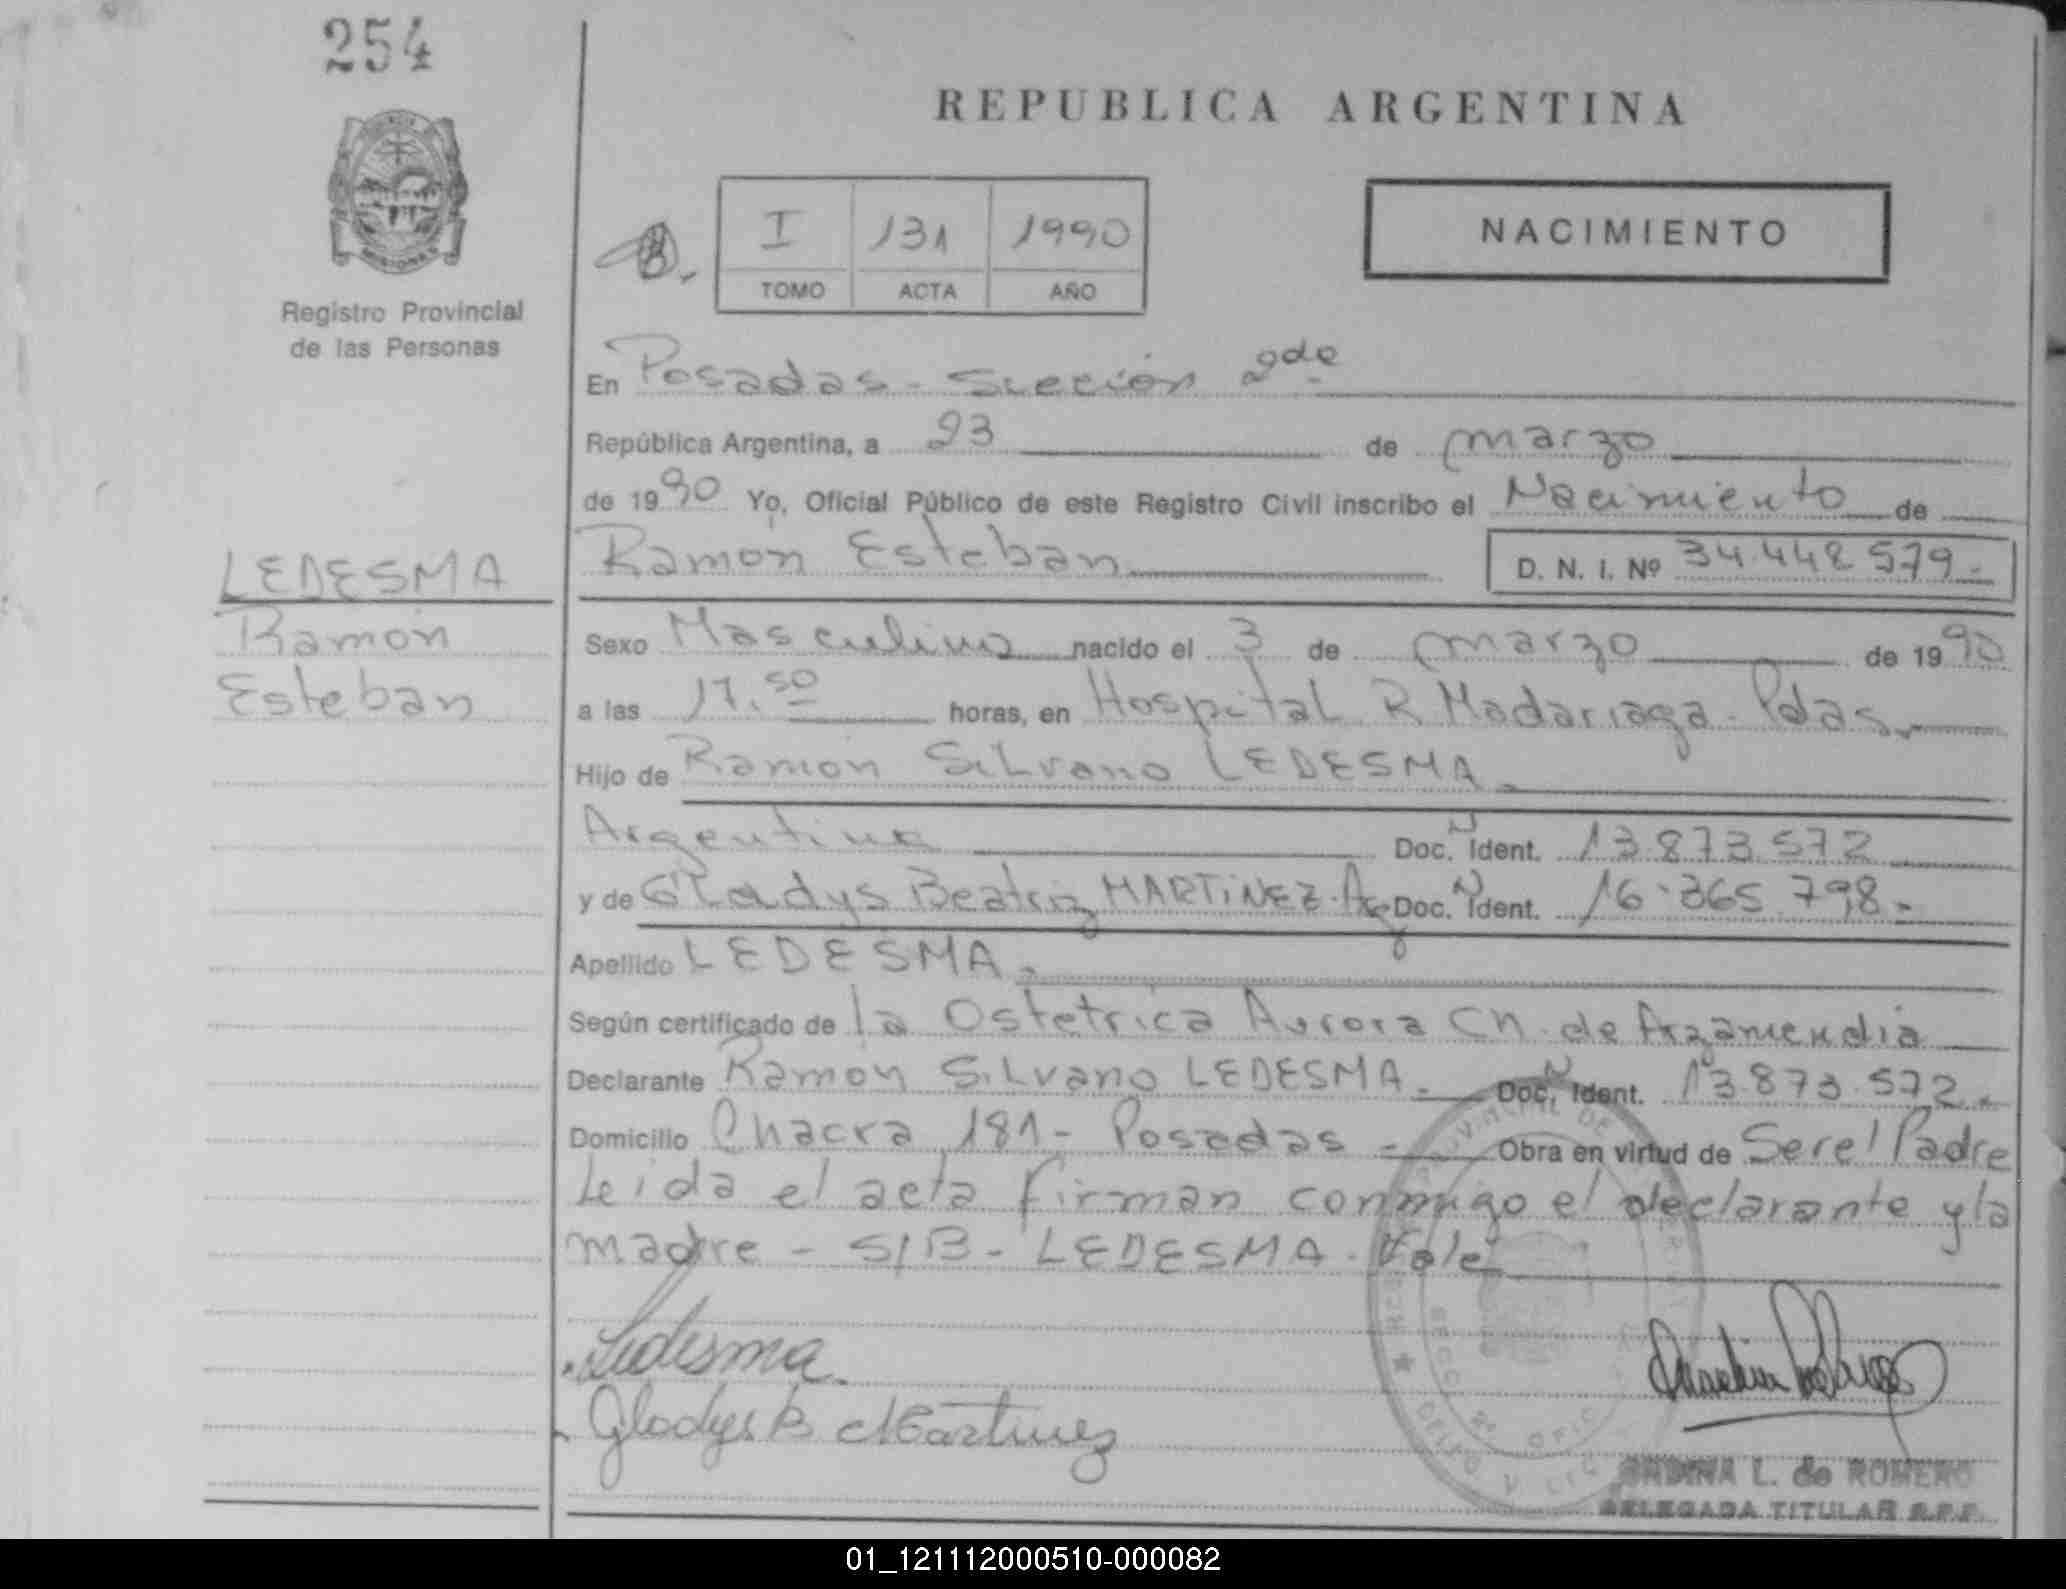 254
REPUBLICA ARGENTINA
I 131 1990
TOMO ACTA AÑO
NACIMIENTO
Registro Provincial
de las Personas
En Posadas - Sección 2da
República Argentina, a 23 de marzo
de 1990 Yo, Oficial Público de este Registro Civil inscribo el Nacimiento de
Ramón Esteban D. N. I. Nº 34.448.579.-
LEDESMA
Ramón
Esteban
Sexo Masculino nacido el 3 de marzo de 1990
a las 17.50 horas, en Hospital R Madariaga - Pdas.
Hijo de Ramón Silvano LEDESMA.
Argentina Doc. N Ident. 13.873.572
y de Gladys Beatriz MARTiNEZ. Arg Doc. N Ident. 16.365.798.-
Apellido LEDESMA.
Según certificado de la Ostetrica Aurora Ch. de Arzamendia
Declarante Ramón Silvano LEDESMA.- Doc. N Ident. 13.873.572.-
Domicilio Chacra 181 - Posadas - Obra en virtud de Ser el Padre
Leida el acta firman conmigo el declarante y la
madre - S/B - LEDESMA - Vale
Ledesma.
Gladys B Martinez
L. de ROMERO
DELEGADA TITULAR R.P.P.
01_121112000510-000082